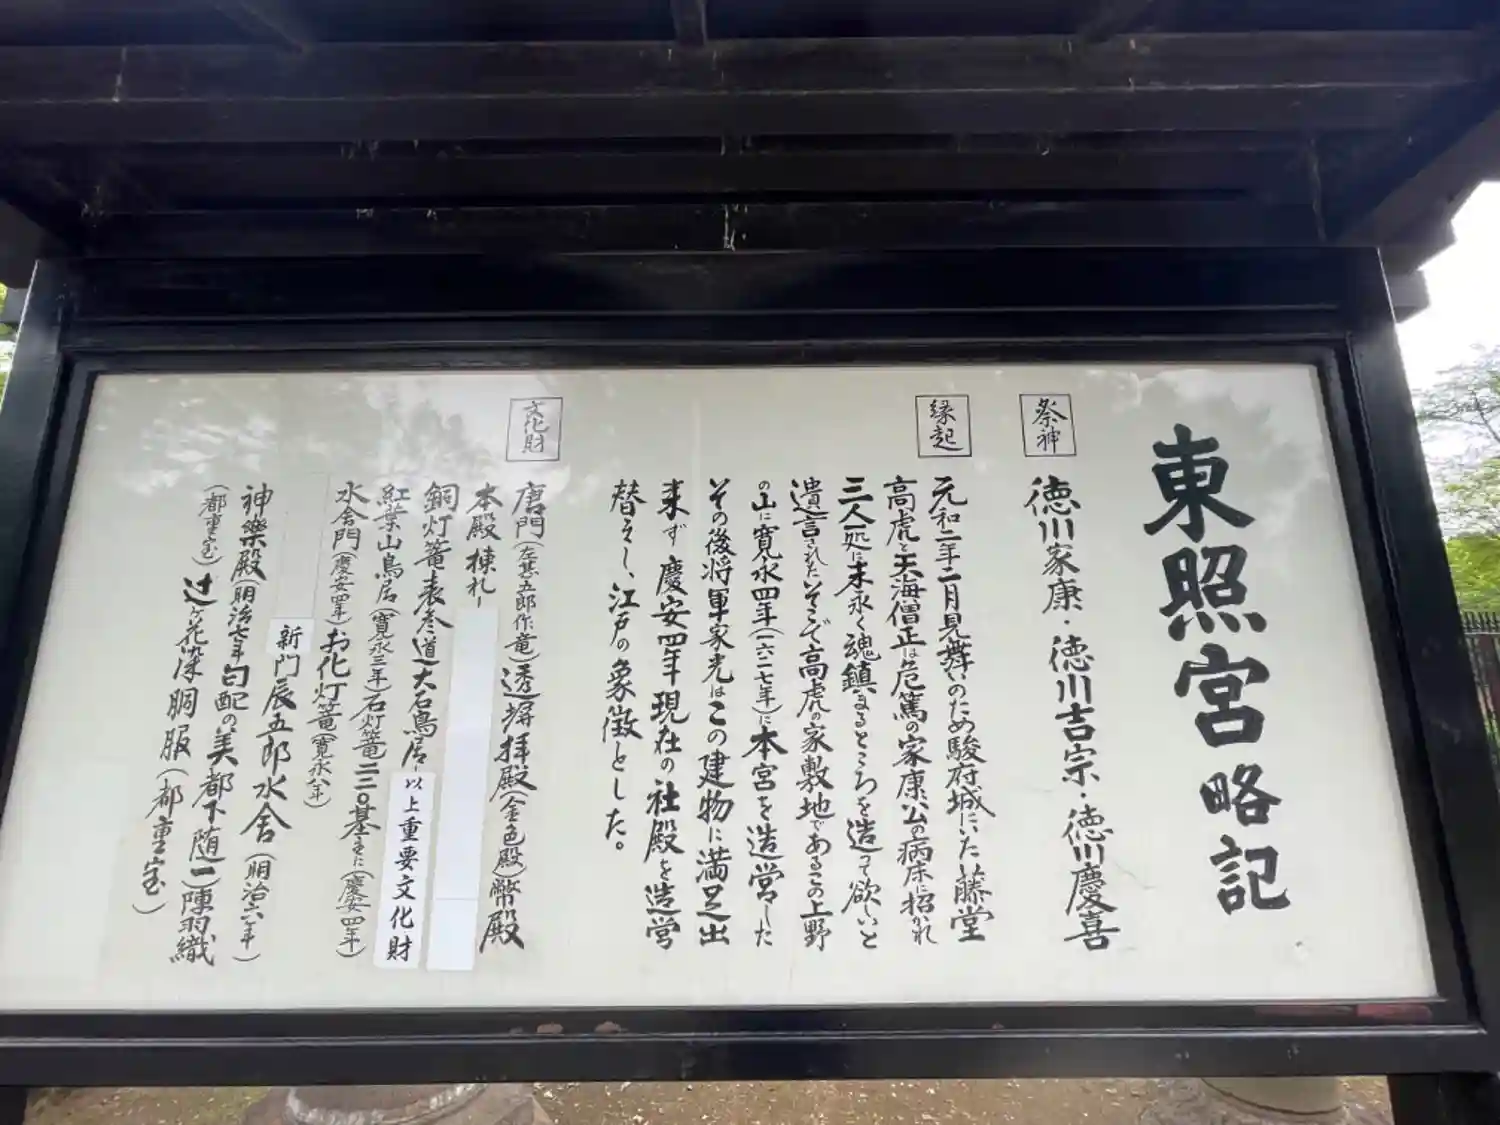 東照宮略記
祭神
徳川家康・徳川吉宗・徳川慶喜
縁起
元和二年二月見舞いのため駿府城にいた藤堂
高虎と天海僧正は危篤の家康公の病床に招かれ
三人一処に末永く魂鎮まるところを造って欲しいと
遺言されたいそこで高虎の家敷地であるこの上野
の山に寛永四年(一六二七年)に本宮を造営した
その後将軍家光はこの建物に満足出
来ず慶安四年現在の社殿を造営
替えし、江戸の象徴とした。
文化財
唐門(左甚五郎作竜)透塀拝殿(金色殿)幣殿
本殿棟札
銅灯篭表参道大石鳥居 以上重要文化財
紅葉山鳥居(寛永三年)石灯篭二二〇基(慶安四年)
水舎門(慶安四年)お化灯篭(寛永八年)
新門辰五郎水舎(明治六年)
神樂殿(明治七年)勾配の美都下随一)陣羽織
(都重宝)辻ヶ花染胴服(都重宝)